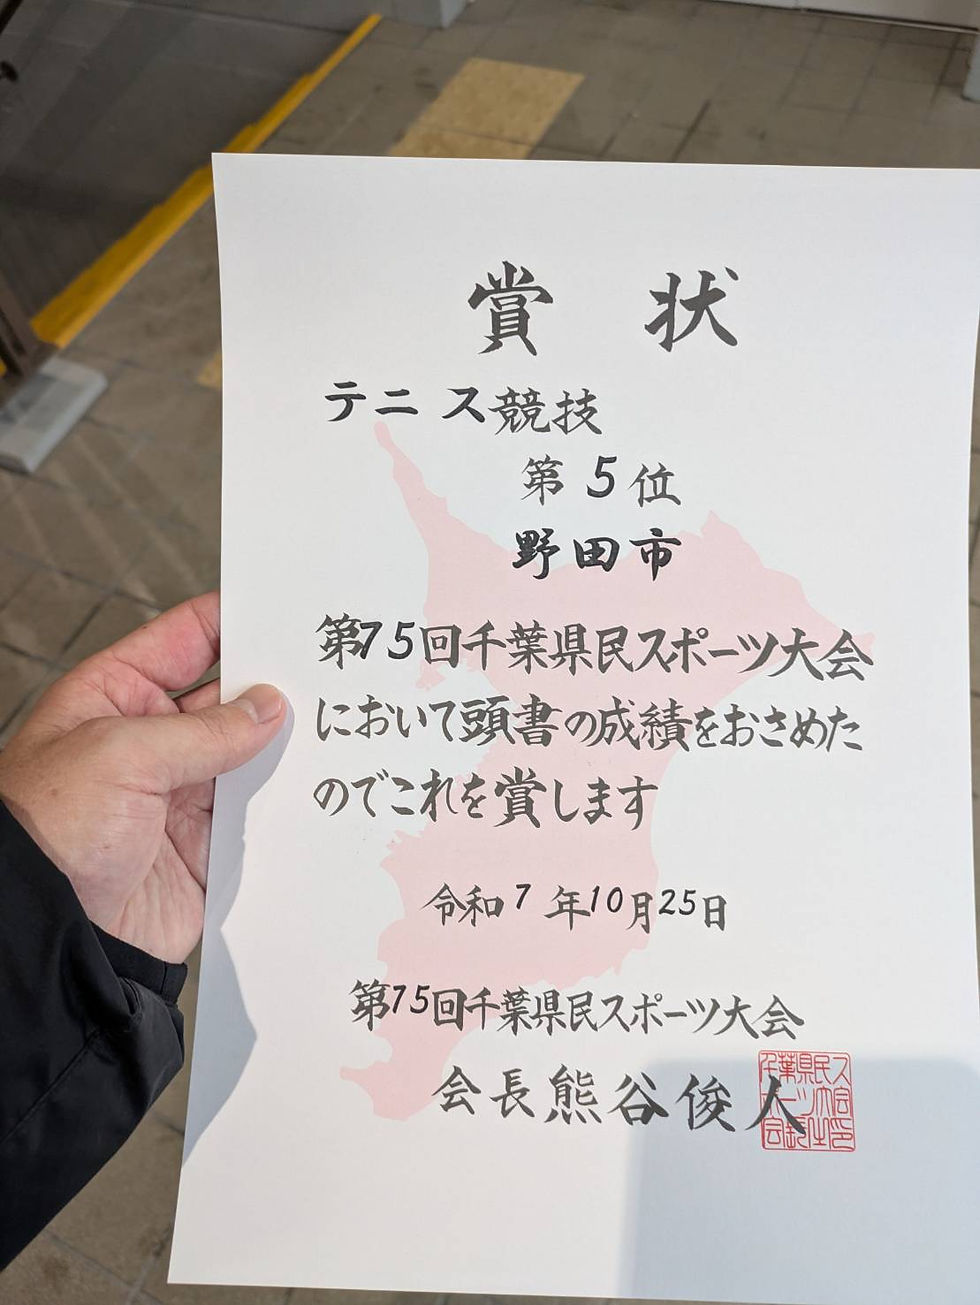 賞 状
テニス競技
第5位
野田市
第75回千葉県民スポーツ大会
において頭書の成績をおさめた
のでこれを賞します
令和7年10月25日
第75回千葉県民スポーツ大会
会長熊谷俊人